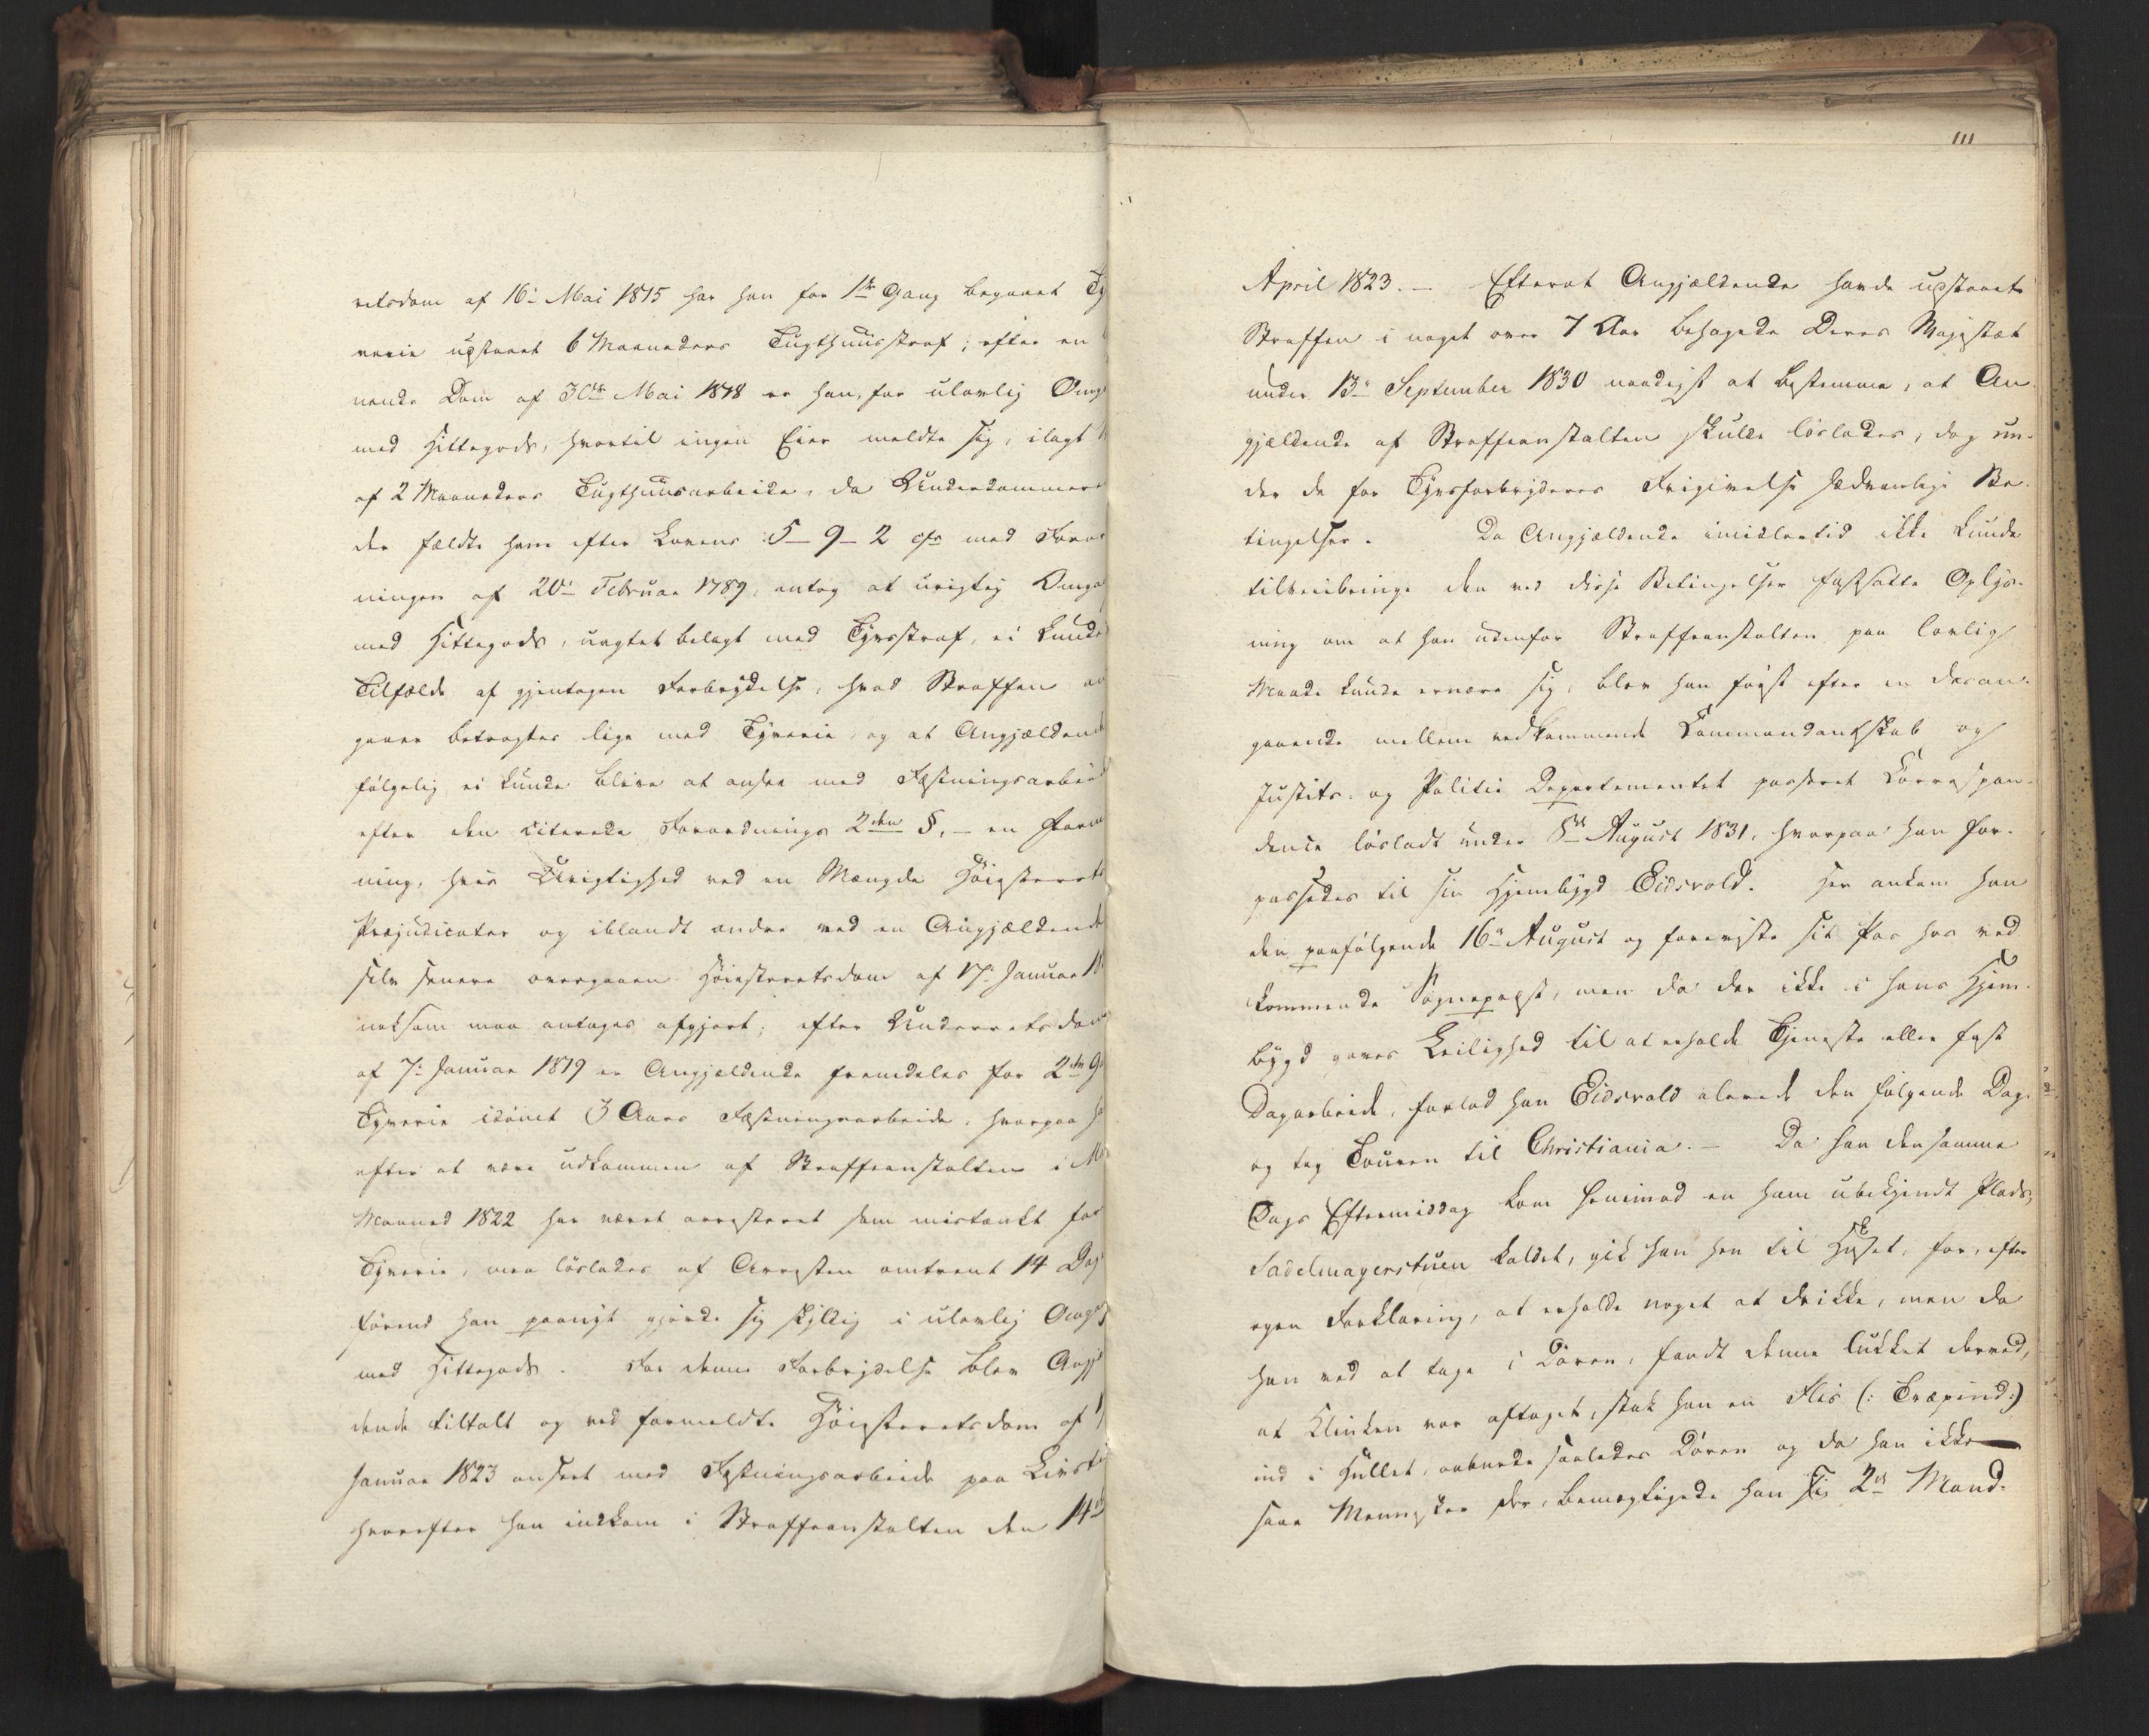 retsdom af 16de Mai 1815 har han for 1ste Gang begaaet Ty
verie udstaaet 6 Maaneders Tugthuusstraf; efter en
nende Dom af 30te Mai 1818 er han, for ulovlig Omg
med Hittegods, hvortil ingen Eier meldte sig, ilagt
af 2 Maaneders Tugthuusarbeide, da Underdommere
der fældte ham efter Lovens 5-9-2 cfr med Foror
ningen af 20de Februar 1789, antog at urigtig Omga
med Hittegods, uagtet belagt med Tyvsstraf, ei kunde
Tilfælde af gjentagen Forbrydelse, hvad Straffen an
gaaer betragtes lige med Tyverie, og at Angjældend
følgelig ei kunde blive at ansee med Fæstningsarbeid
efter den citerede Forordnings 2den §, – en Form
ning, hvis Urigtighed ved en Mængde Höiesterets
Præjudicater og iblandt andre ved en Angjældende
selv senere overgaaen Höiesteretsdom af 17de Januar 18
noksom maa antages afgjort; efter Underretsdom
af 7de Januar 1819 er Angjældende fremdeles for 2den G
Tyverie idömt 3 Aars Fæstningsarbeide, hvorpaa ha
efter at være udkommen af Straffeanstalten i M
Maaned 1822 har været arresteret som mistænkt for
Tyverie, men löslades af Arresten omtrent 14 Dag
förend han paanyt gjorde sig skyldig i ulovlig Omg
med Hittegods. For denne Forbrydelse blev Angjæ
dende tiltalt og ved formeldte Höiesteretsdom af 1
Januar 1823 anseet med Fæstningsarbeide paa Livst
hvorefter han indkom i Straffeanstalten den 14de
111
April 1823. – Efterat Angjældende havde udstaaet
Straffen i noget over 7 Aar behagede Deres Majestæt
under 13de September 1830 naadigst at bestemme, at An-
gjældende af Straffeanstalten skulde löslades, dog un-
der de for Tyvsforbryderes Frigivelse sædvanlige Be-
tingelser. Da Angjældende imidlertid ikke kunde
tilveiebringe den ved disse Betingelser fastsatte Oplys-
ning om at han udenfor Straffeanstalten paa lovlig
Maade kunde ernære sig, blev han först efter en desan-
gaaende mellem vedkommende Commandantskab og
Justits- og Politie Departementet passeret Correspon-
dence lösladt under 5te August 1831, hvorpaa han for-
passedes til sin Hjembygd Eidsvold. Her ankom han
den paafölgende 16de August og foreviste sit Pas hos ved
kommende Sognepræst, men da der ikke i hans Hjem-
bygd gaves Leilighed til at erholde Tjeneste eller fast
Dagarbeide, forlod han Eidsvold alerede den fölgende Dag
og tog Touren til Christiania. – Da han densamme
Dags Eftermiddag kom henimod en ham ubekjendt Plads,
Sadelmagerstuen kaldet, gik han hen til Huset, for, efter
egen Forklaring, at erholde noget at drikke, men da
han ved at tage i Dören, fandt denne lukket derved,
at Klinken var aftaget, stak han en Flis (: Træpind:)
ind i Hullet, aabnede saaledes Dören og da han ikke
saae Mennesker der, bemægtigede han sig 2de Mand-